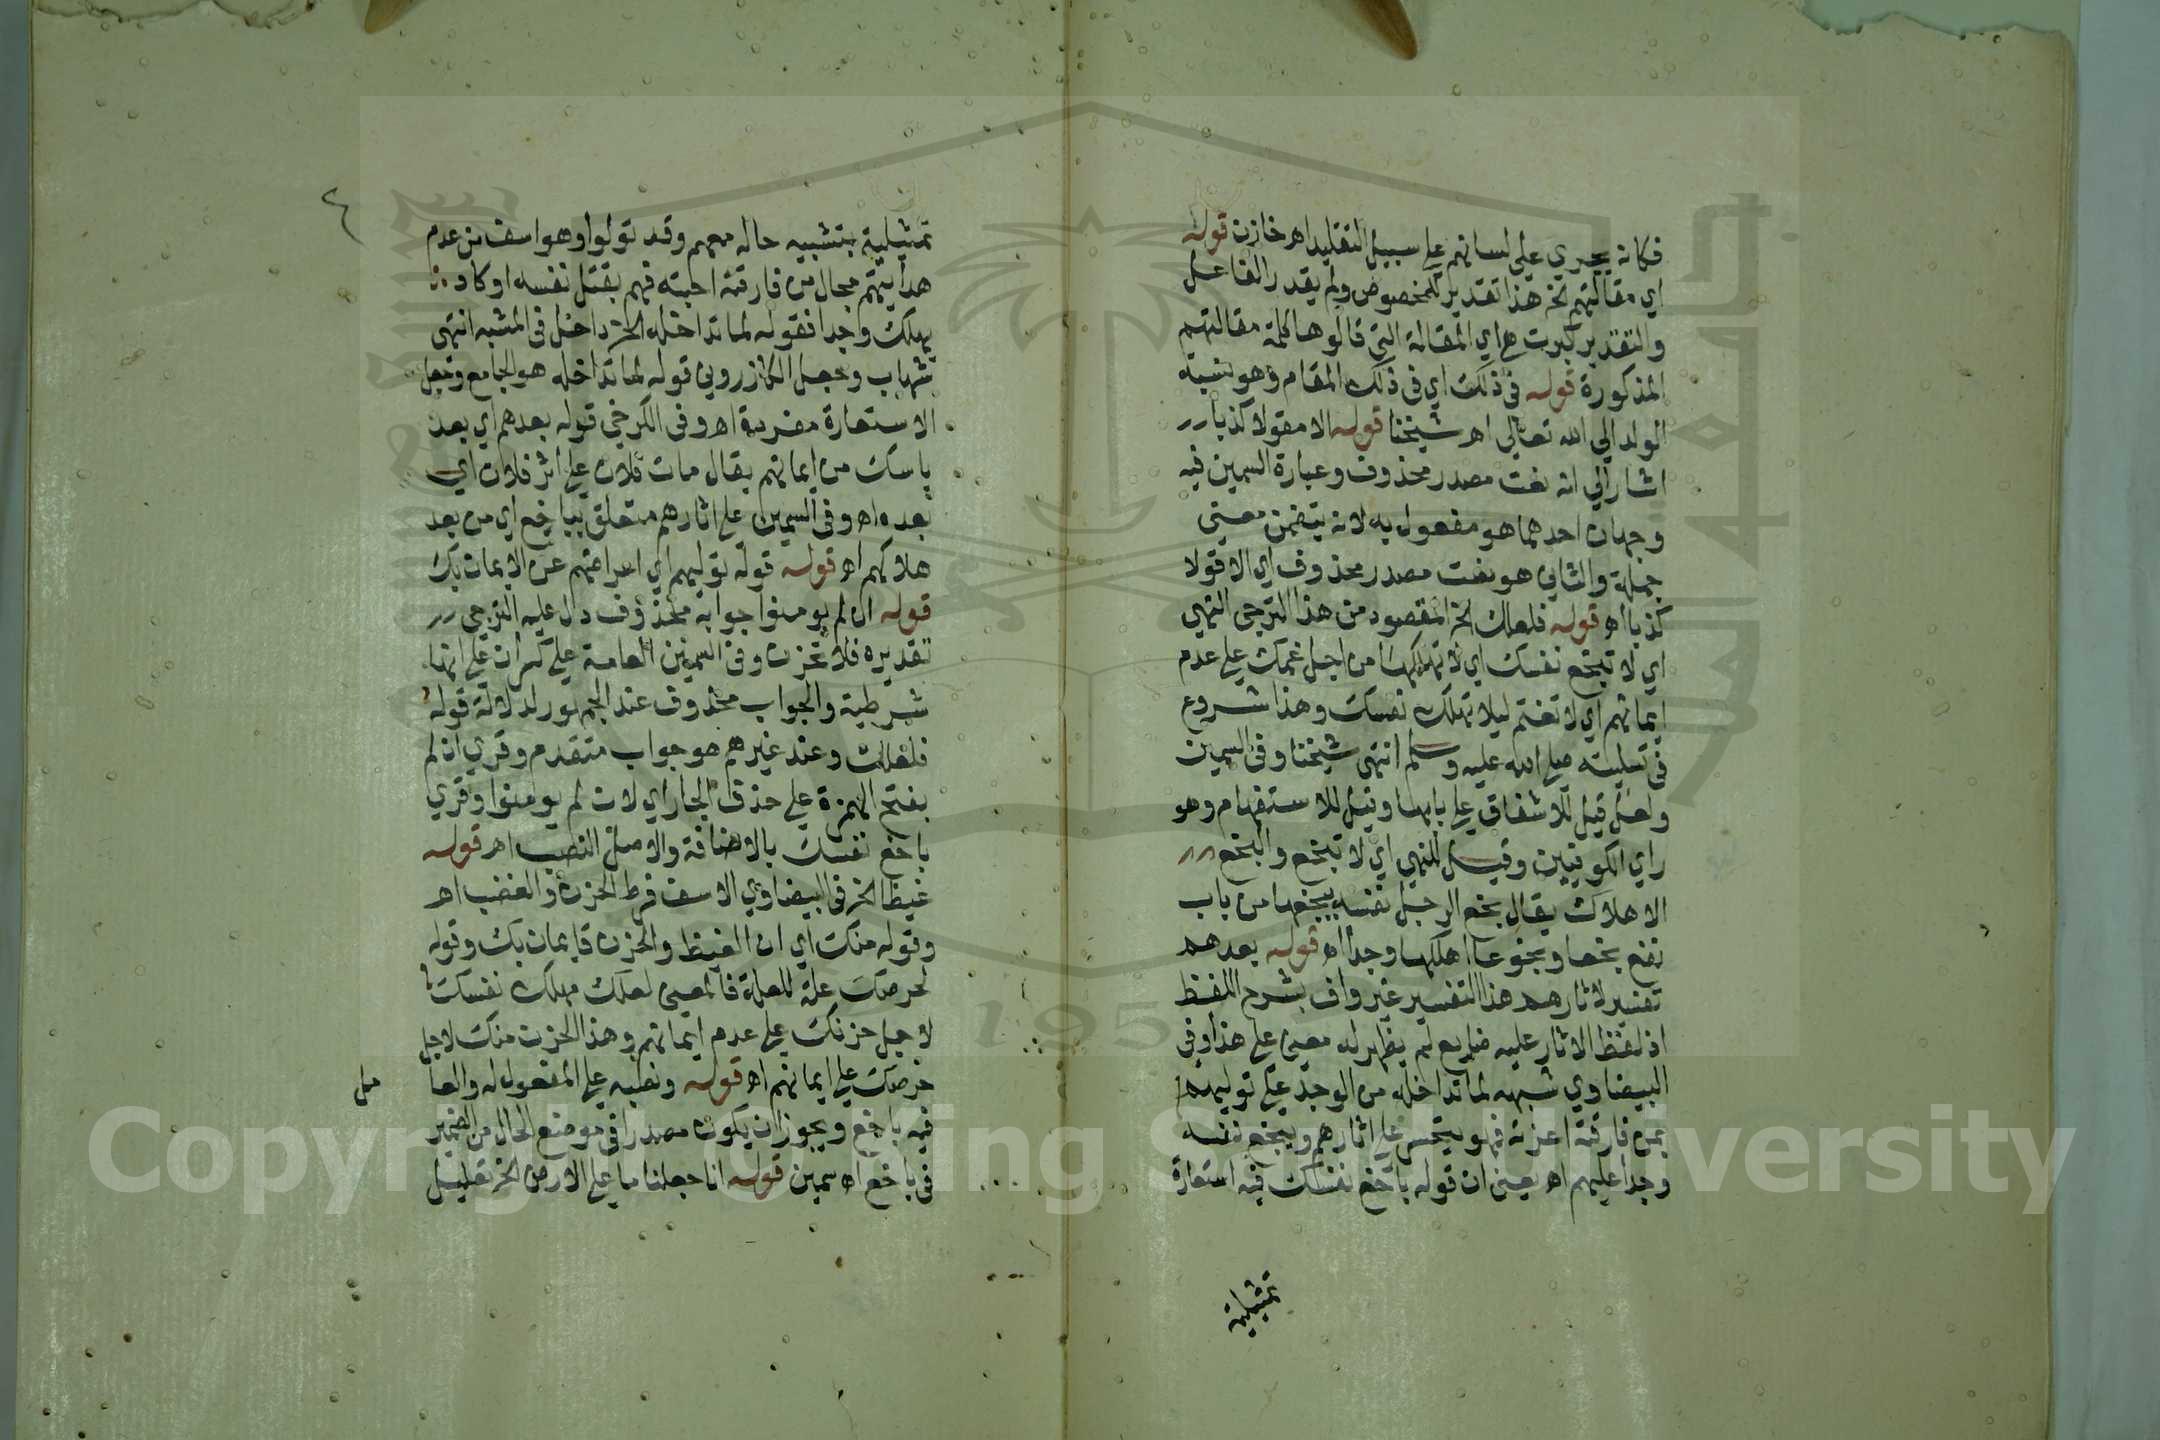 فكانه يجري على لسانهم على سبيل التقليد اه خازن قوله
اي مقالتهم الخ هذا تقدير للمخصوص ولم يقدر الفاعل
والتقدير كبرت هي اي المقالة التي قالوها كلمة مقالتهم
المذكورة قوله في ذلك اي في ذلك المقام وهو نسبة
الولد الي الله تعالي اه شيخنا قوله الا مقولا كذبا
اشار الي انه نعت مصدر محذوف وعبارة السمين فيه
وجهان احدهما هو مفعول به لانه يتضمن معني
جملة والثاني هو نعت مصدر محذوف اي الا قولا
كذبا اه قوله فلعلك الخ المقصود من هذا الترجي النهي
اي لا تبخع نفسك اي لا تهلكها من اجل غمك على عدم
ايمانهم اي لا تغتم ليلا تهلك نفسك وهذا شروع
في تسليته صلى الله عليه وسلم انتهى شيخنا وفي السمين
ولعل قيل للاشفاق على بابها وقيل للاستفهام وهو
راي الكوفيين وقيل للنهي اي لا تبخع والبخع
الاهلاك يقال بخع الرجل نفسه يبخعها من باب
نفع بخعا وبخوعا اهلكها وجدا اه قوله بعدهم
تفسير لاثارهم هذا التفسير غير واف بشرح اللفظ
اذ لفظ الاثار عليه ضايع لم يظهر له معني على هذا وفي
البيضاوي شبهه لما تداخله من الوجد على توليهم
بمن فارقته اعزته فهو يتحسر على اثارهم ويبخع نفسه
وجدا عليهم اه يعني ان قوله باخع نفسك فيه استعارة
تمثيلية
تمثيلية بتشبيه حاله معهم وقد تولوا وهو اسف من عدم
هدايتهم بحال من فارقته احبته فهم بقتل نفسه او كاد
يهلك وجدا فقوله لما تداخله الخ داخل في المشبه انتهى
شهاب وجعل الكازروني قوله لما تداخله هو الجامع وجعل
الاستعارة مفردة اه وفي الكرخي قوله بعدهم اي بعد
ياسك من ايمانهم يقال مات فلان على اثر فلان اي
بعده اه وفي السمين على اثارهم متعلق بباخع اي من بعد
هلاكهم اه قوله قوله توليهم اي اعراضهم عن الايمان بك
قوله ان لم يومنوا جوابه محذوف دل عليه الترجي
تقديره فلا تحزن وفي السمين العامة على كسران على انها
شرطية والجواب محذوف عند الجمهور لدلالة قوله
فلعلك وعند غيرهم هو جواب متقدم وقري ان لم
بفتح الهمزة على حذف الجار اي لان لم يومنوا وقري
باخع نفسك بالاضافة والاصل النصب اه قوله
غيظا الخ في البيضاوي الاسف فرط الحزن والغضب اه
وقوله منك اي ان الغيظ والحزن قايمان بك وقوله
لحرصك علة للعلة فالمعني لعلك مهلك نفسك
لاجل حزنك على عدم ايمانهم وهذا الحزن منك لاجل
حرصك على ايمانهم اه قوله ونصبه على المفعول له والعا
مل
فيه باخع ويجوز ان يكون مصدرا في موضع الحال من الضمير
في باخع اه سمين قوله انا جعلنا ما على الارض الخ تعليل
1957
Copyright © King Saud University